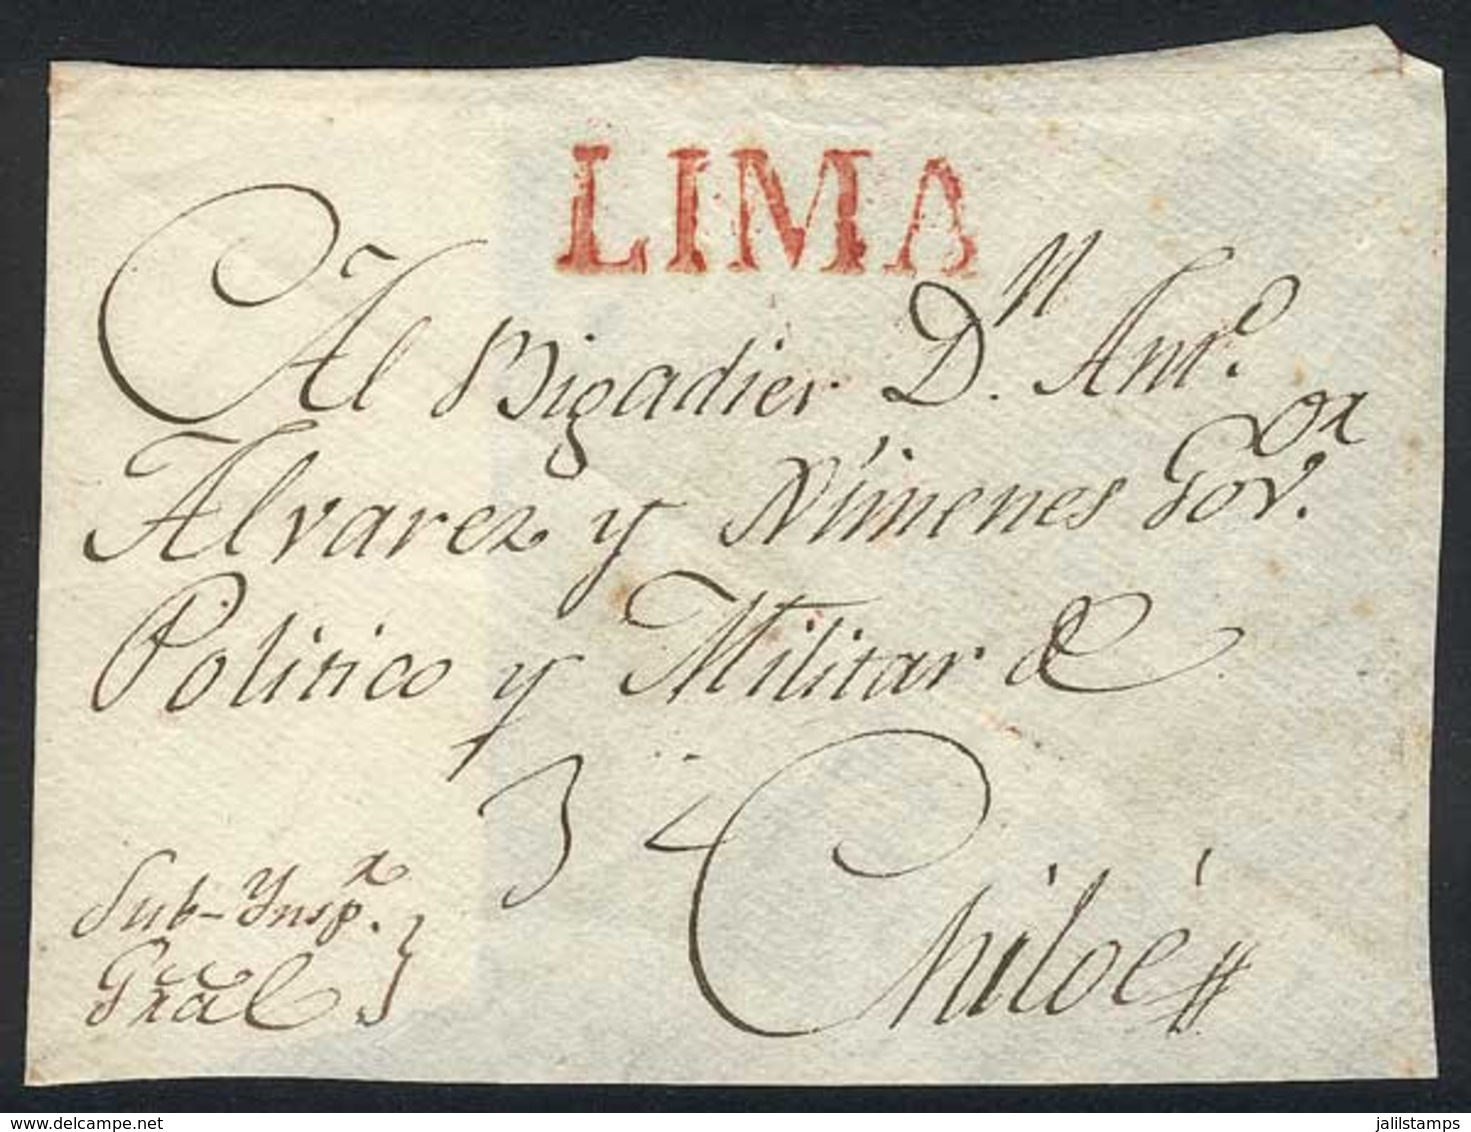 LIMA
Al Brigadier D.n Ant.o
Alvarez y Ximenes Gov.or
Politico y Militar de
34
Chiloé
Sub-Ynsp.r
Gral
jalilstamps